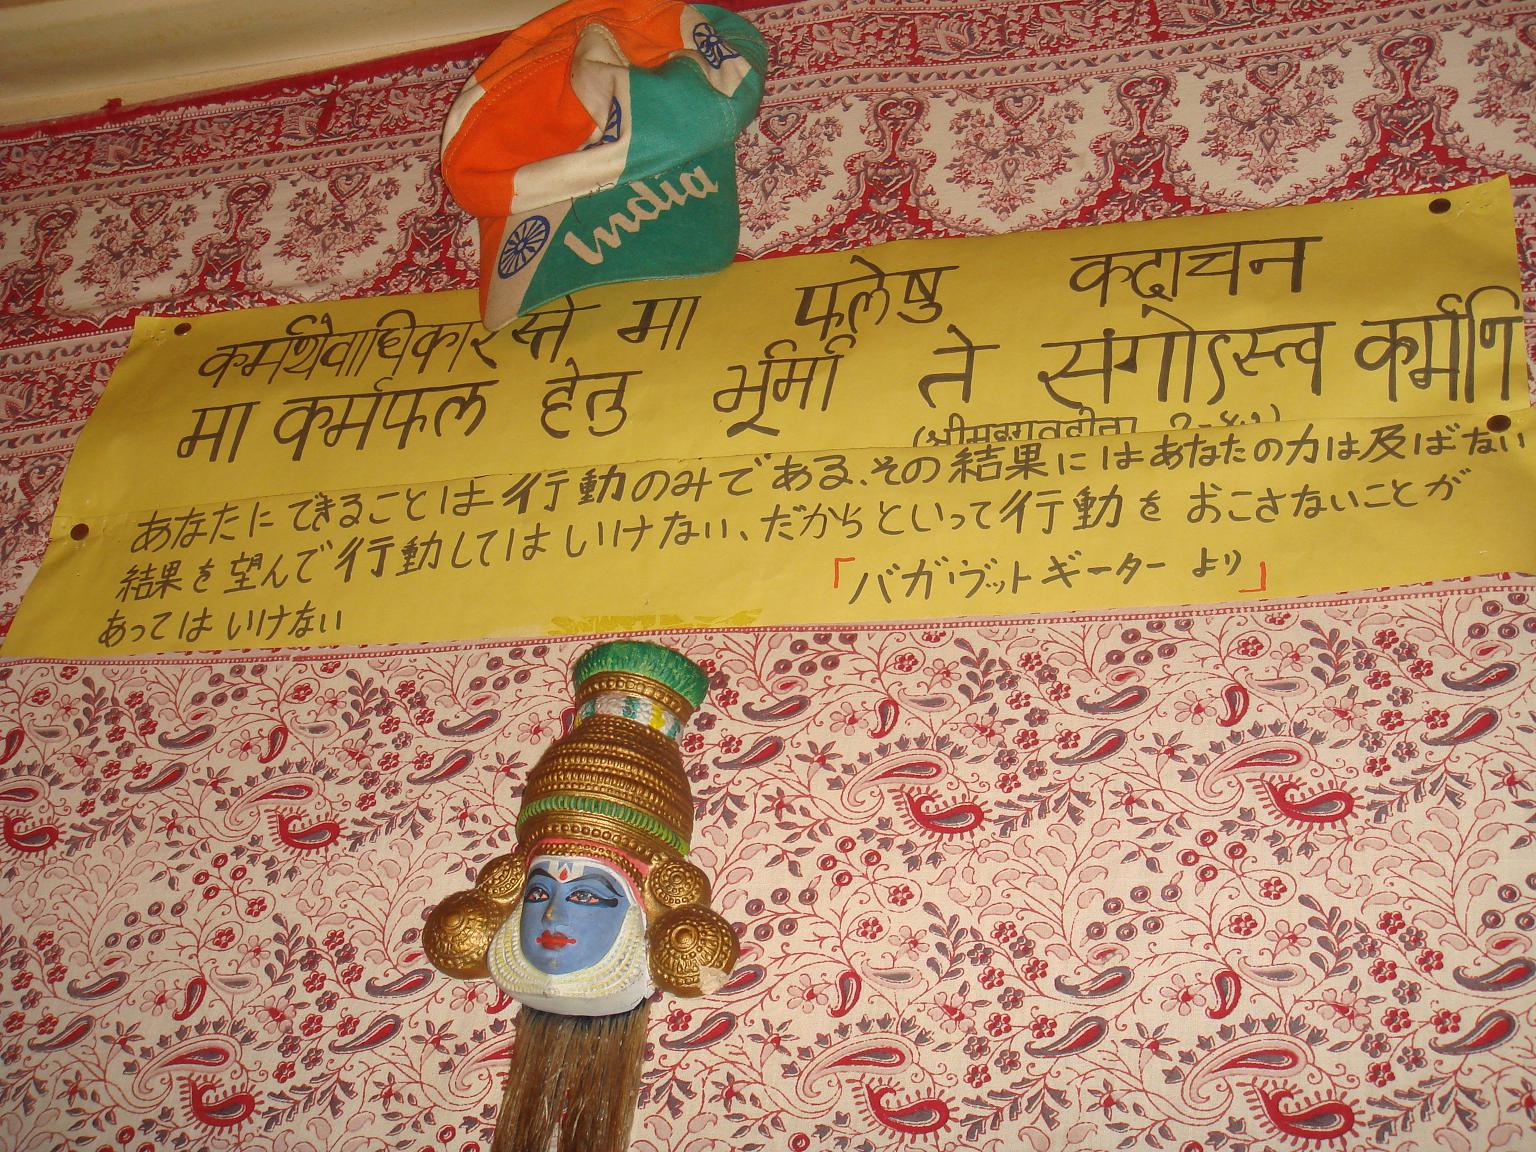 India
कर्मथैवाधिकारस्ते मा फलेषु कदाचन
मा कर्मफल हेतु र्भूर्मा ते संगोऽस्त्व कर्मणि
(श्रीमद्भगवद्गीता २-४७)
あなたにできることは行動のみである、その結果にはあなたの力は及ばない
結果を望んで行動してはいけない、だからといって行動をおこさないことが
あってはいけない
「バガヴットギーターより」